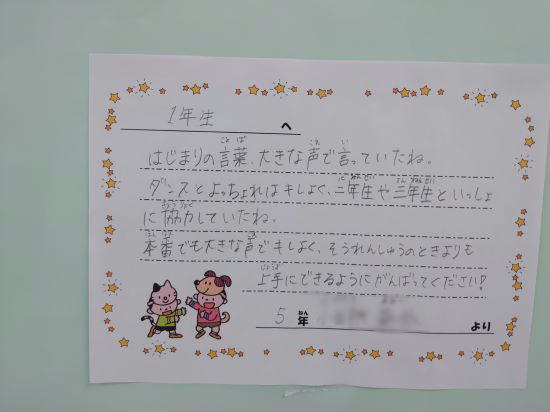 1年生 へ
はじまりの言葉、大きな声で言っていたね。
ダンスとよっちょれはキレよく、二年生や三年生といっしょ
に協力していたね。
本番でも大きな声でキレよく、そうれんしゅうのときよりも
上手にできるようにがんばってください!
5年 より